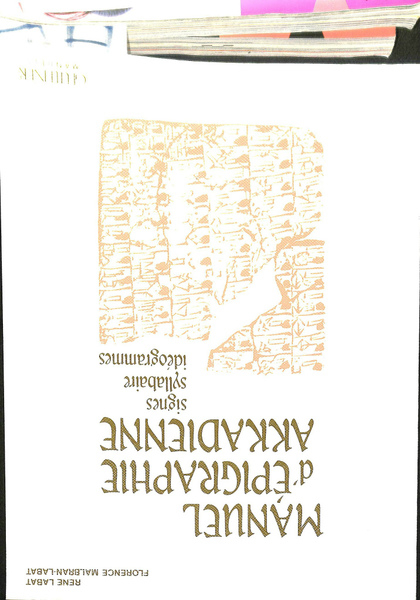 RENÉ LABAT
FLORENCE MALBRAN-LABAT
MANUEL
d'ÉPIGRAPHIE
AKKADIENNE
signes
syllabaire
idéogrammes